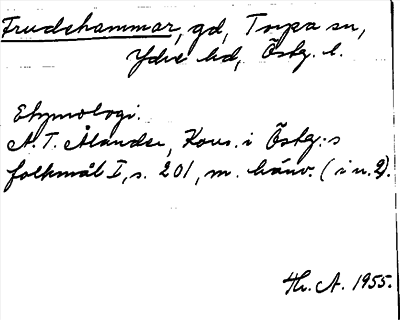 Frudshammar, gd, Torpa sn,
Ydre hd, Östg. l.
Etymologi.
A. T. Ålander, Kons. i Östg:s
folkmål I, s. 201, m. hänv. (i n. 2).
Hr. A. 1955.